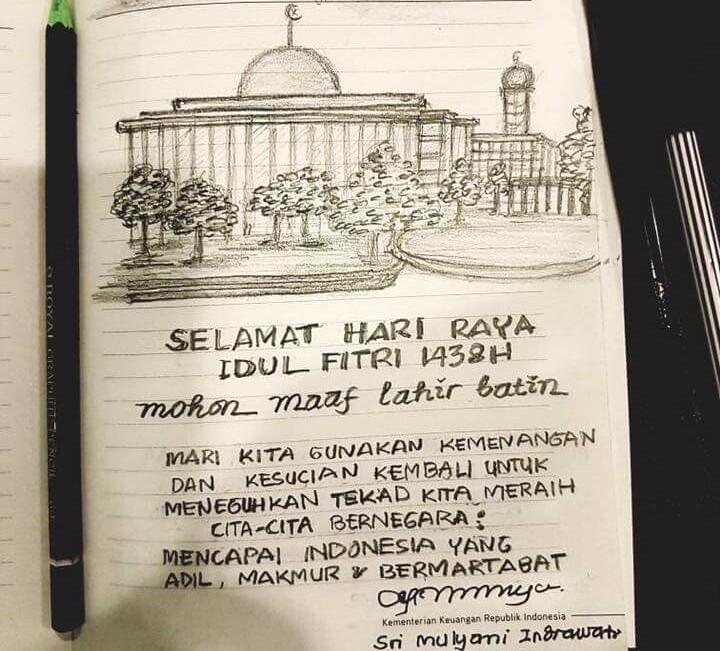 SELAMAT HARI RAYA
IDUL FITRI 1438H
mohon maaf lahir batin
MARI KITA GUNAKAN KEMENANGAN
DAN KESUCIAN KEMBALI UNTUK
MENEGUHKAN TEKAD KITA MERAIH
CITA-CITA BERNEGARA:
MENCAPAI INDONESIA YANG
ADIL, MAKMUR & BERMARTABAT
Kementerian Keuangan Republik Indonesia
Sri Mulyani Indrawati